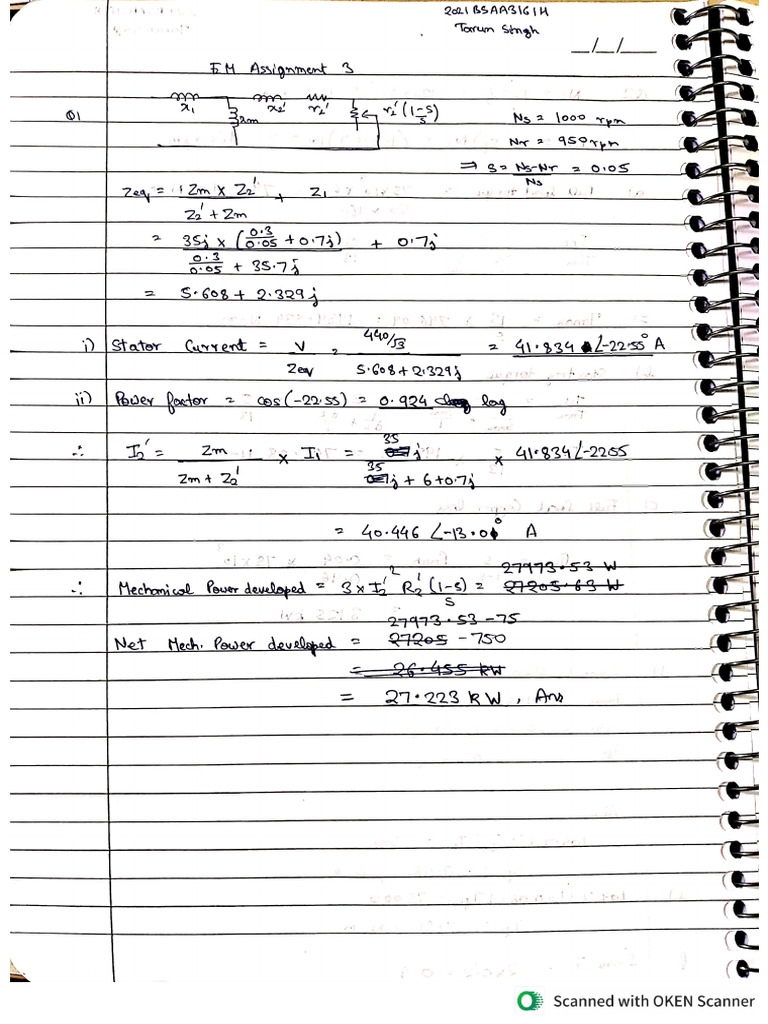 2021BSAA3161H
Tarun Singh
__/__/____
EM Assignment 3
Q1
x1 xm x2' r2' r2'(1-s)/s
Ns = 1000 rpm
Nr = 950 rpm
⇒ S = (Ns-Nr)/Ns = 0.05
Zeq = (Zm x Z2')/(Z2' + Zm) + Z1
= (35j x (0.3/0.05 + 0.7j))/(0.3/0.05 + 35.7j) + 0.7j
= 5.608 + 2.329j
i) Stator Current = V/Zeq = (440/√3)/(5.608+2.329j) = 41.834 ∠-22.55° A
ii) Power factor = cos(-22.55) = 0.924 lag
∴ I2' = Zm/(Zm + Z2') x I1 = 35j/(35j + 6+0.7j) x 41.834∠-22.55
= 40.446 ∠-13.0° A
∴ Mechanical Power developed = 3 x I2'² R2'(1-s)/s = 27973.53 W
27205.63 W
27973.53 -75
Net Mech. Power developed = 27205 -750
= 26.455 kW
= 27.223 kW, Ans
Scanned with OKEN Scanner